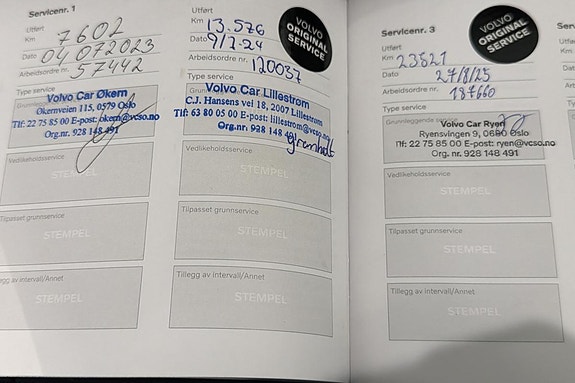 Servicenr. 1
Utført
Km 7602
Dato 04072023
Arbeidsordre nr. 57442
Type service
Volvo Car Økern
Økernveien 115, 0579 Oslo
Tlf: 22 75 85 00 E-post: okern@vcso.no
Org.nr. 928 148 491
Vedlikeholdsservice
STEMPEL
Tilpasset grunnservice
STEMPEL
Tillegg av intervall/Annet
STEMPEL
Utført
Km 13.576
Dato 9/2-24
Arbeidsordre nr. 120037
Type service
VOLVO
ORIGINAL
SERVICE
Volvo Car Lillestrøm
C.J. Hansens vei 18, 2007 Lillestrøm
Tlf: 63 80 05 00 E-post: lillestrom@vcso.no
Org.nr. 928 148 491
Vedlikeholdsservice
STEMPEL
Tilpasset grunnservice
STEMPEL
Tillegg av intervall/Annet
STEMPEL
Servicenr. 3
Utført
Km 23521
Dato 27/8/25
Arbeidsordre nr. 187660
Type service
VOLVO
ORIGINAL
SERVICE
Grunnleggende service
Volvo Car Ryen
Ryensvingen 9, 0680 Oslo
Tlf: 22 75 85 00 E-post: ryen@vcso.no
Org.nr. 928 148 491
Vedlikeholdsservice
STEMPEL
Tilpasset grunnservice
STEMPEL
Tillegg av intervall/Annet
STEMPEL